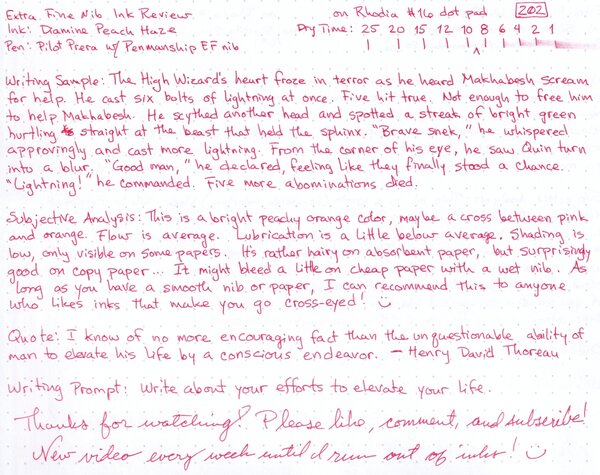 Extra Fine Nib Ink Review on Rhodia #16 dot pad 202
Ink: Diamine Peach Haze Dry Time: 25 20 15 12 10 8 6 4 2 1
Pen: Pilot Prera w/ Penmanship EF nib
Writing Sample: The High Wizard's heart froze in terror as he heard Makhabesh scream
for help. He cast six bolts of lightning at once. Five hit true. Not enough to free him
to help Makhabesh. He scythed another head and spotted a streak of bright green
hurtling straight at the beast that held the sphinx. "Brave snek," he whispered
approvingly and cast more lightning. From the corner of his eye, he saw Quin turn
into a blur. "Good man," he declared, feeling like they finally stood a chance.
"Lightning!" he commanded. Five more abominations died.
Subjective Analysis: This is a bright peachy orange color, maybe a cross between pink
and orange. Flow is average. Lubrication is a little below average. Shading is
low, only visible on some papers. It's rather hairy on absorbent paper, but surprisingly
good on copy paper... It might bleed a little on cheap paper with a wet nib. As
long as you have a smooth nib or paper, I can recommend this to anyone
who likes inks that make you go cross-eyed!
Quote: I know of no more encouraging fact than the unquestionable ability of
man to elevate his life by a conscious endeavor. - Henry David Thoreau
Writing Prompt: Write about your efforts to elevate your life.
Thanks for watching! Please like, comment, and subscribe!
New video every week until I run out of inks!